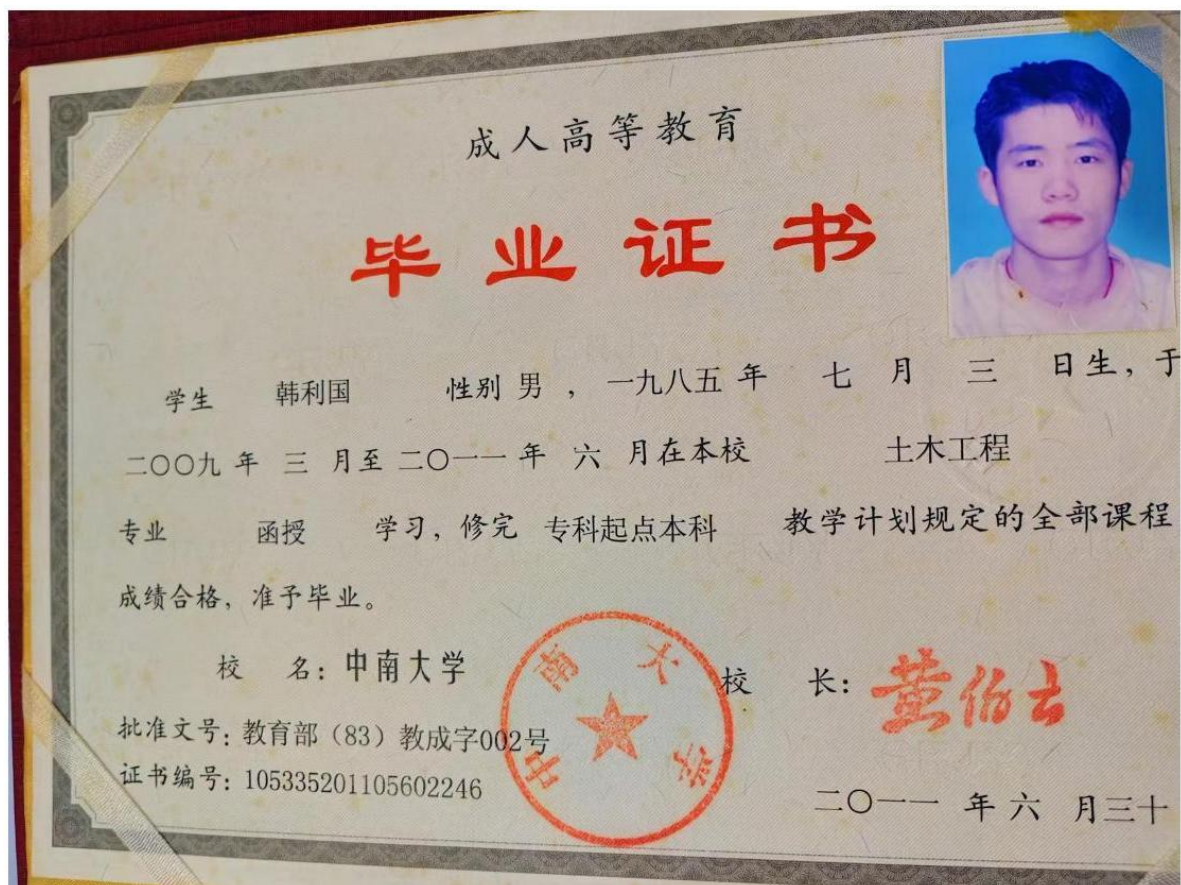 成人高等教育
毕业证书
学生 韩利国 性别 男 ， 一九八五 年 七 月 三 日生，于
二〇〇九 年 三 月至 二〇一一 年 六 月在本校 土木工程
专业 函授 学习，修完 专科起点本科 教学计划规定的全部课程
成绩合格，准予毕业。
校 名：中南大学 校 长：黄伯云
批准文号：教育部（83）教成字002号
证书编号：105335201105602246
中南大学
二〇一一 年 六 月三十